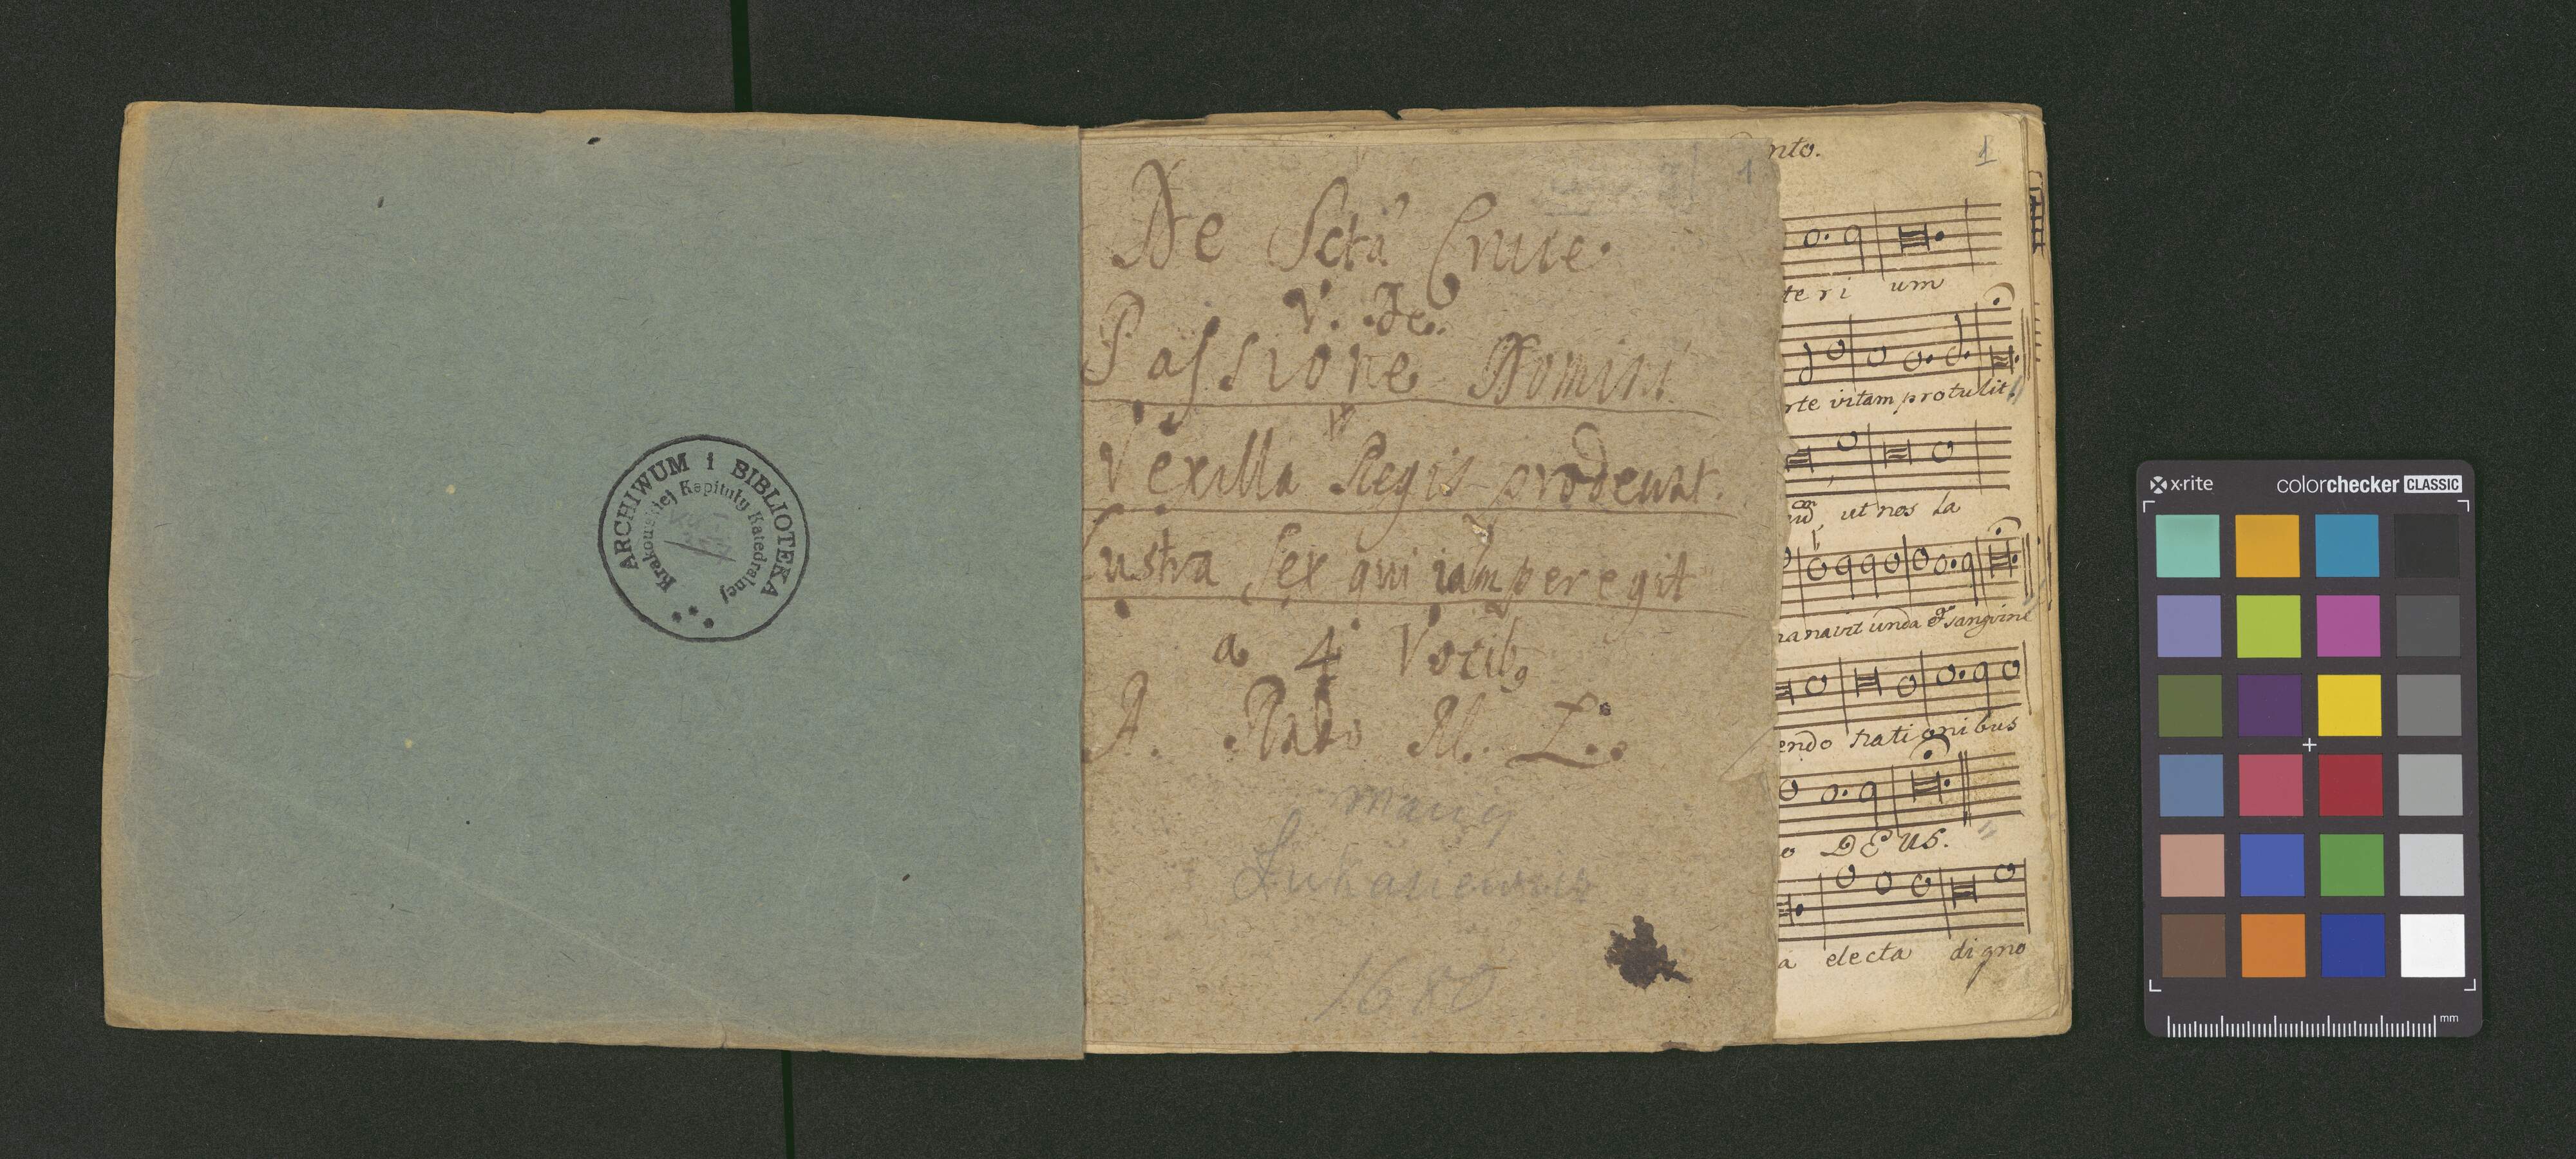 ARCHIWUM i BIBLIOTEKA
Krakowskiej Kapituły Katedralnej
1
De Sctâ Cruce.
V. De.
Passione Domini
Vexilla Regis prodeunt.
Lustra Sex qui iam peregit
a 4 Vocib9
A. Rado M. L.
1680
nto.
1
teri um
rte vitam protulit.
ut nos la
manavit unda & sangvine
endo nationibus
o DEUS.
a electa digno
x-rite
colorchecker CLASSIC
mm